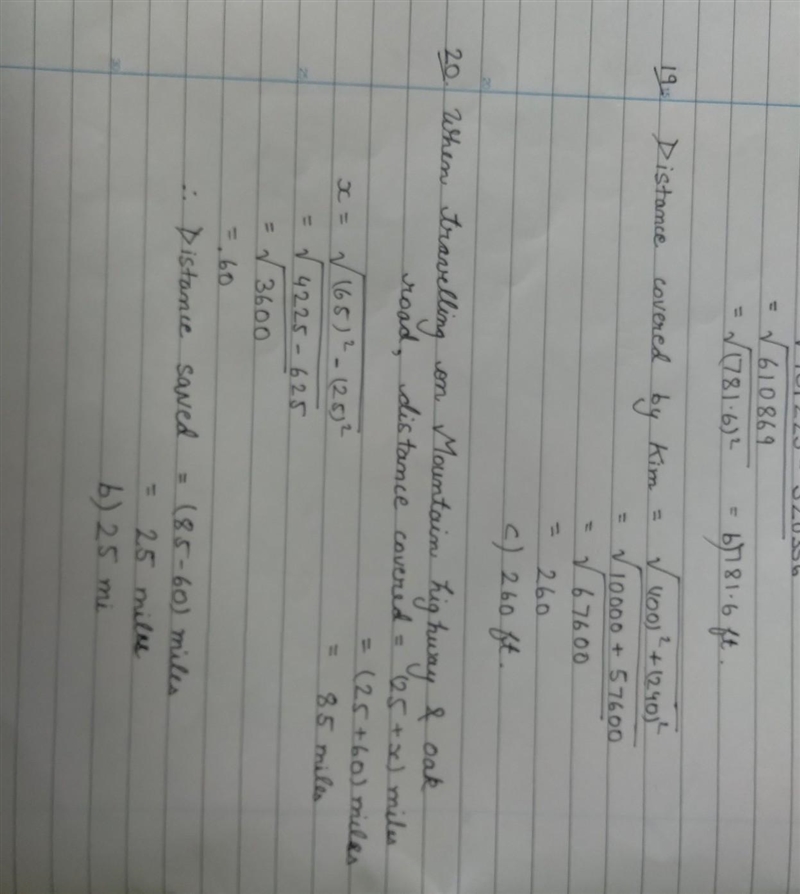 = √610869
= √(781.6)² = b) 781.6 ft.
19. Distance covered by Kim = √(100)² + (240)²
= √10000 + 57600
= √67600
= 260
c) 260 ft.
20. When travelling on Mountain highway & oak
road, distance covered = (25 + x) miles
= (25 + 60) miles
x = √(65)² - (25)²
= 85 miles
= √4225 - 625
= √3600
= 60
∴ Distance saved = (85 - 60) miles
= 25 miles
b) 25 mi